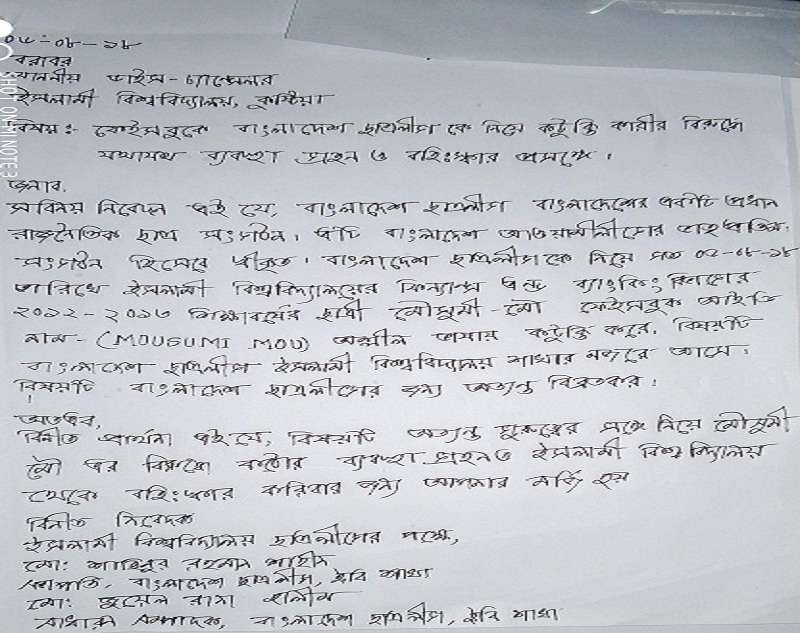 ০৪-০৮-১৮
বরাবর
মাননীয় ভাইস-চ্যান্সেলর
ইসলামী বিশ্ববিদ্যালয়, কুষ্টিয়া
বিষয়ঃ- ফেইসবুকে বাংলাদেশ ছাত্রলীগ কে নিয়ে কটূক্তি কারীর বিরুদ্ধে
যথাযথ ব্যবস্থা গ্রহন ও বহিঃষ্কার প্রসঙ্গে।
জনাব,
সবিনয় নিবেদন এই যে, বাংলাদেশ ছাত্রলীগ বাংলাদেশের একটি প্রধান
রাজনৈতিক ছাত্র সংগঠন। এটি বাংলাদেশ আওয়ামীলীগের ভাতৃপ্রতিম
সংগঠন হিসেবে স্বীকৃত। বাংলাদেশ ছাত্রলীগকে নিয়ে গত ০২-০৮-১৮
তারিখে ইসলামী বিশ্ববিদ্যালয়ের ফিন্যান্স এন্ড ব্যাংকিং বিভাগের
২০১২-২০১৩ শিক্ষাবর্ষের ছাত্রী মৌসুমী-মৌ ফেইসবুক আইডি
নাম-(MOUSUMI MOU) অশ্লীল ভাষায় কটূক্তি করে, বিষয়টি
বাংলাদেশ ছাত্রলীগ ইসলামী বিশ্ববিদ্যালয় শাখার নজরে আসে।
বিষয়টি বাংলাদেশ ছাত্রলীগের জন্য অত্যন্ত বিব্রতকর।
অতএব,
বিনীত প্রার্থনা এই যে, বিষয়টি অত্যন্ত গুরুত্বের সঙ্গে নিয়ে মৌসুমী
মৌ এর বিরুদ্ধে কঠোর ব্যবস্থা গ্রহন ও ইসলামী বিশ্ববিদ্যালয়
থেকে বহিঃষ্কার করিবার জন্য আপনার মর্জি হয়
বিনীত নিবেদক
ইসলামী বিশ্ববিদ্যালয় ছাত্রলীগের পক্ষে,
মোঃ শাহিনুর রহমান শাহীন
সভাপতি, বাংলাদেশ ছাত্রলীগ, ইবি শাখা
মোঃ জুয়েল রানা হালিম
সাধারণ সম্পাদক, বাংলাদেশ ছাত্রলীগ, ইবি শাখা
SHOT ON MI NOTE 3